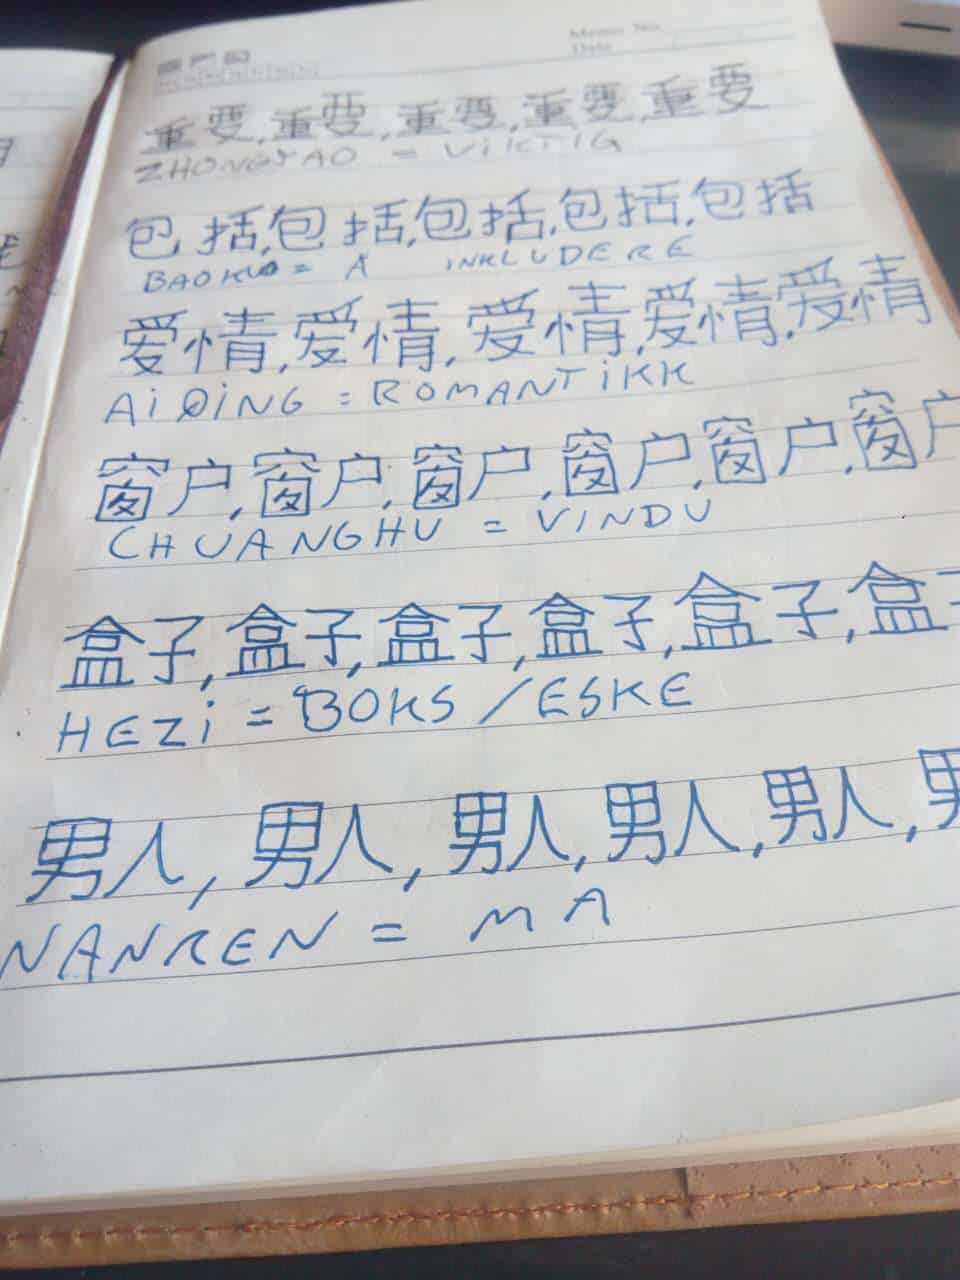 Memo No.
Date
重要,重要,重要,重要,重要
ZHONGYAO = ViKTIG
包括,包括,包括,包括,包括
BAOKUO = Å INKLUDERE
爱情,爱情,爱情,爱情,爱情
AiQiNG = ROMANTiKK
窗户,窗户,窗户,窗户,窗户,窗户
CHUANGHU = VINDU
盒子,盒子,盒子,盒子,盒子,盒子
HEZi = BOKS / ESKE
男人,男人,男人,男人,男人,男
NANREN = MA